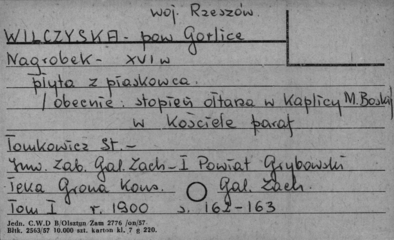 woj. Rzeszów.
WILCZYSKA - pow Gorlice
Nagrobek - XVI w
płyta z piaskowca.
/obecnie: stopień ołtarza w Kaplicy M. Boskiej
w Kościele paraf
Tomkowicz St. -
Inw. Zab. Gal. Zach - I Powiat Grybowski
Teka Grona Kons. Gal. Zach.
Tom I r. 1900 s. 162-163
Jedn. C.W.D B/Olsztyn Zam 2776 /on/57.
Bltk. 2563/57 10.000 szt. karton kl. 7 g 220.